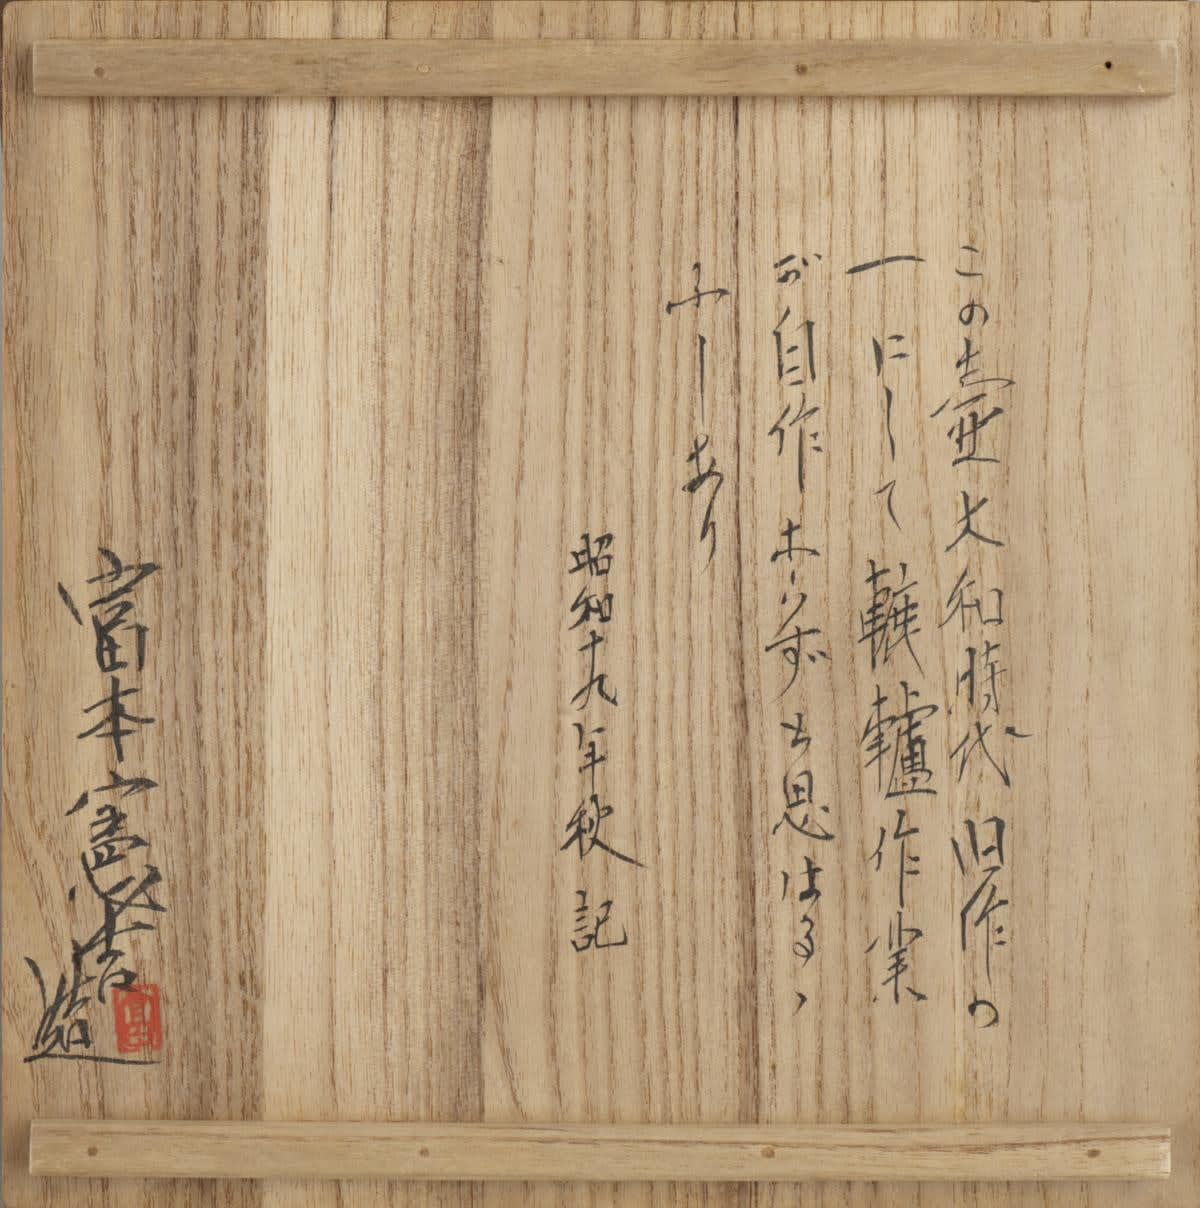 この壷大和時代旧作の
一にして轆轤作業
が自作ならずと思はるゝ
ふしあり
昭和十九年秋記
富本憲吉造